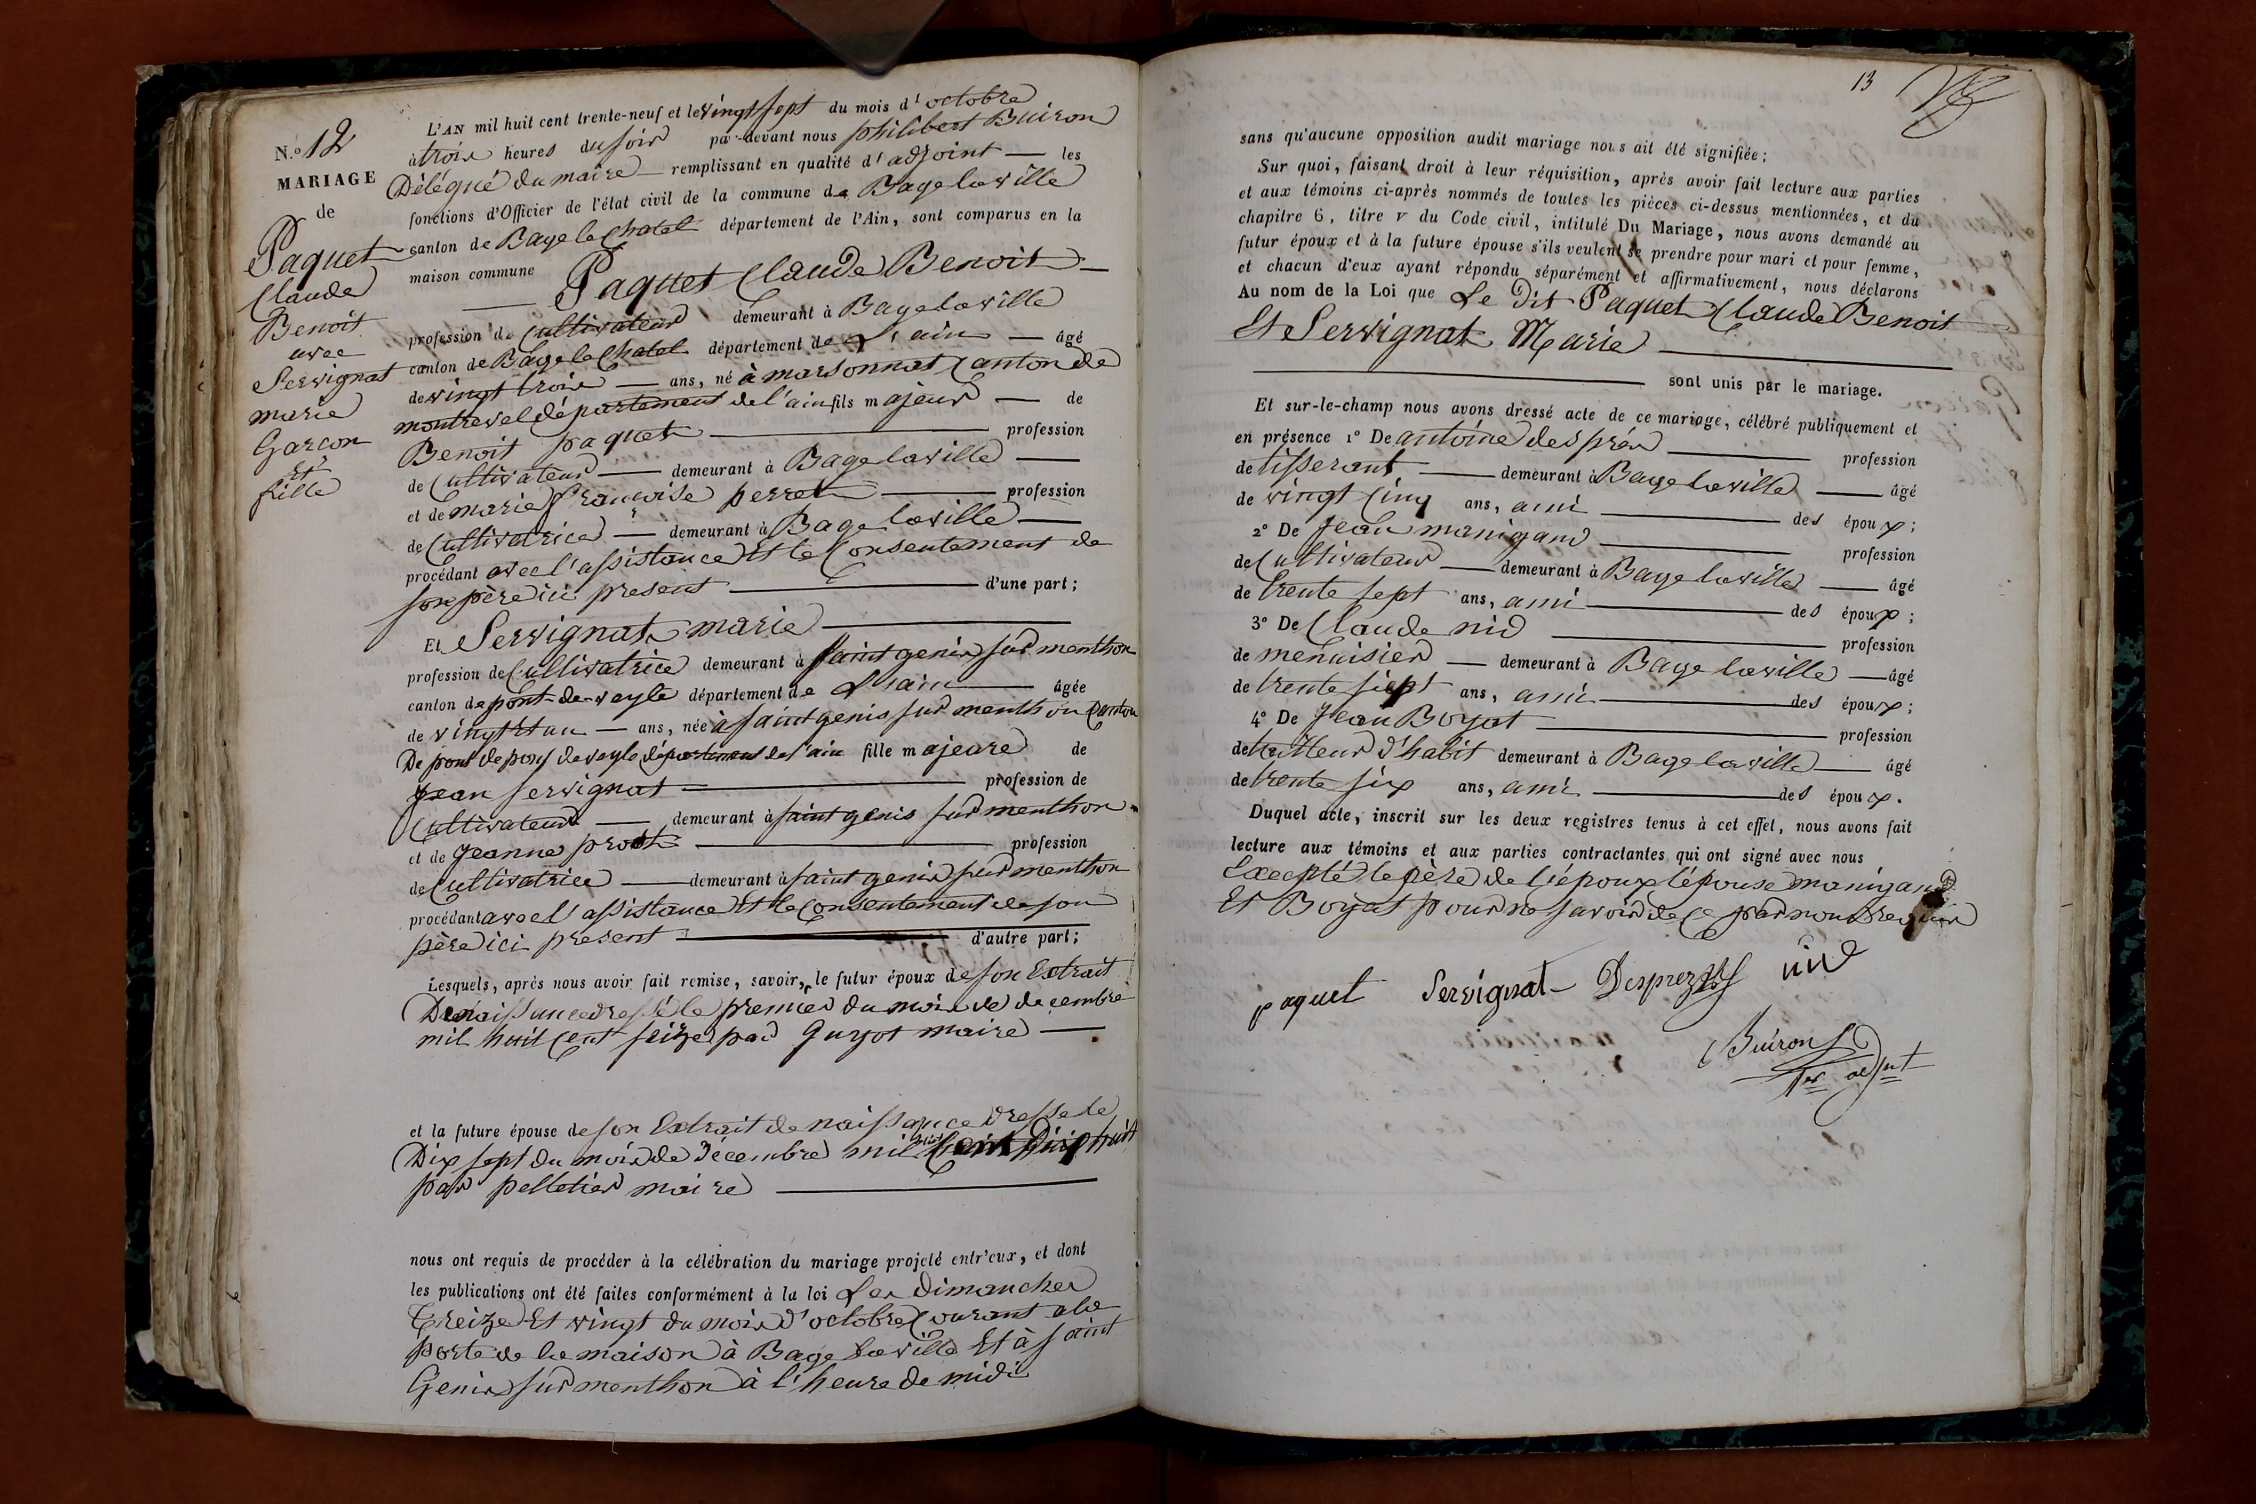 N.º 12
MARIAGE
de
Paquet
Claude
Benoit
avec
Servignat
marie
Garcon
et
fille
L'AN mil huit cent trente-neuf et le vingt sept du mois d'octobre
à trois heures du soir par-devant nous philibert Buiron
Délégué du maire remplissant en qualité d'adjoint les
fonctions d'Officier de l'état civil de la commune de Bage la ville
canton de Bage le Chatel département de l'Ain, sont comparus en la
maison commune Paquet Claude Benoit
profession de Cultivateur demeurant à Bage la ville
canton de Bage le Chatel département de L'ain âgé
de vingt trois ans, né à marsonnat Canton de
montrevel département de l'ain fils majeur de
Benoit paquet profession
de Cultivateur demeurant à Bage la ville
et de marie francoise perret profession
de Cultivatrice demeurant à Bage la ville
procédant avec l'assistance Et le Consentement de
son père ici present d'une part;
Et Servignat marie
profession de Cultivatrice demeurant à saint genis sur menthon
canton de pont-de-veyle département de L'ain âgée
de vingt Et un ans, née à saint genis sur menthon Canton
De pont de pont de veyle département de l'ain fille majeure de
jean servignat profession de
Cultivateur demeurant à saint genis sur menthon
et de jeanne prost profession
de Cultivatrice demeurant à saint genis sur menthon
procédant avec l'assistance Et le Consentement de son
père ici present d'autre part;
Lesquels, après nous avoir fait remise, savoir, le futur époux de son Extrait
De naissance dressé le premier du mois de decembre
mil huit Cent seize par Guyot maire
et la future épouse de son Extrait de naissance dresse le
Dix sept du mois de Décembre mil huit Cent Dix huit
par pelletier maire
nous ont requis de procéder à la célébration du mariage projeté entr'eux, et dont
les publications ont été faites conformément à la loi Les Dimanches
Treize Et vingt du mois d'octobre Courant a la
porte de la maison à Bage la ville Et à saint
Genis sur menthon à l'heure de midi
13
sans qu'aucune opposition audit mariage nous ait été signifiée;
Sur quoi, faisant droit à leur réquisition, après avoir fait lecture aux parties
et aux témoins ci-après nommés de toutes les pièces ci-dessus mentionnées, et du
chapitre 6, titre v du Code civil, intitulé Du Mariage, nous avons demandé au
futur époux et à la future épouse s'ils veulent se prendre pour mari et pour femme,
et chacun d'eux ayant répondu séparément et affirmativement, nous déclarons
Au nom de la Loi que Le Dit Paquet Claude Benoit
Et Servignat Marie
sont unis par le mariage.
Et sur-le-champ nous avons dressé acte de ce mariage, célébré publiquement et
en présence 1º De antoine després profession
de tisserant demeurant à Bage la ville âgé
de vingt Cinq ans, ami des époux;
2º De jean manigand profession
de Cultivateur demeurant à Bage la ville âgé
de trente sept ans, ami des époux;
3º De Claude nid profession
de menuisier demeurant à Bage la ville âgé
de trente sept ans, ami des époux;
4º De jean Boyat profession
de tailleur d'habit demeurant à Bage la ville âgé
de trente six ans, ami des époux.
Duquel acte, inscrit sur les deux registres tenus à cet effet, nous avons fait
lecture aux témoins et aux parties contractantes qui ont signé avec nous
Excepté le père de l'époux l'épouse manigand
Et Boyat pour ne savoir de ce par nous requis
paquet Servignat Desprez nid
Buiron
1er adjnt